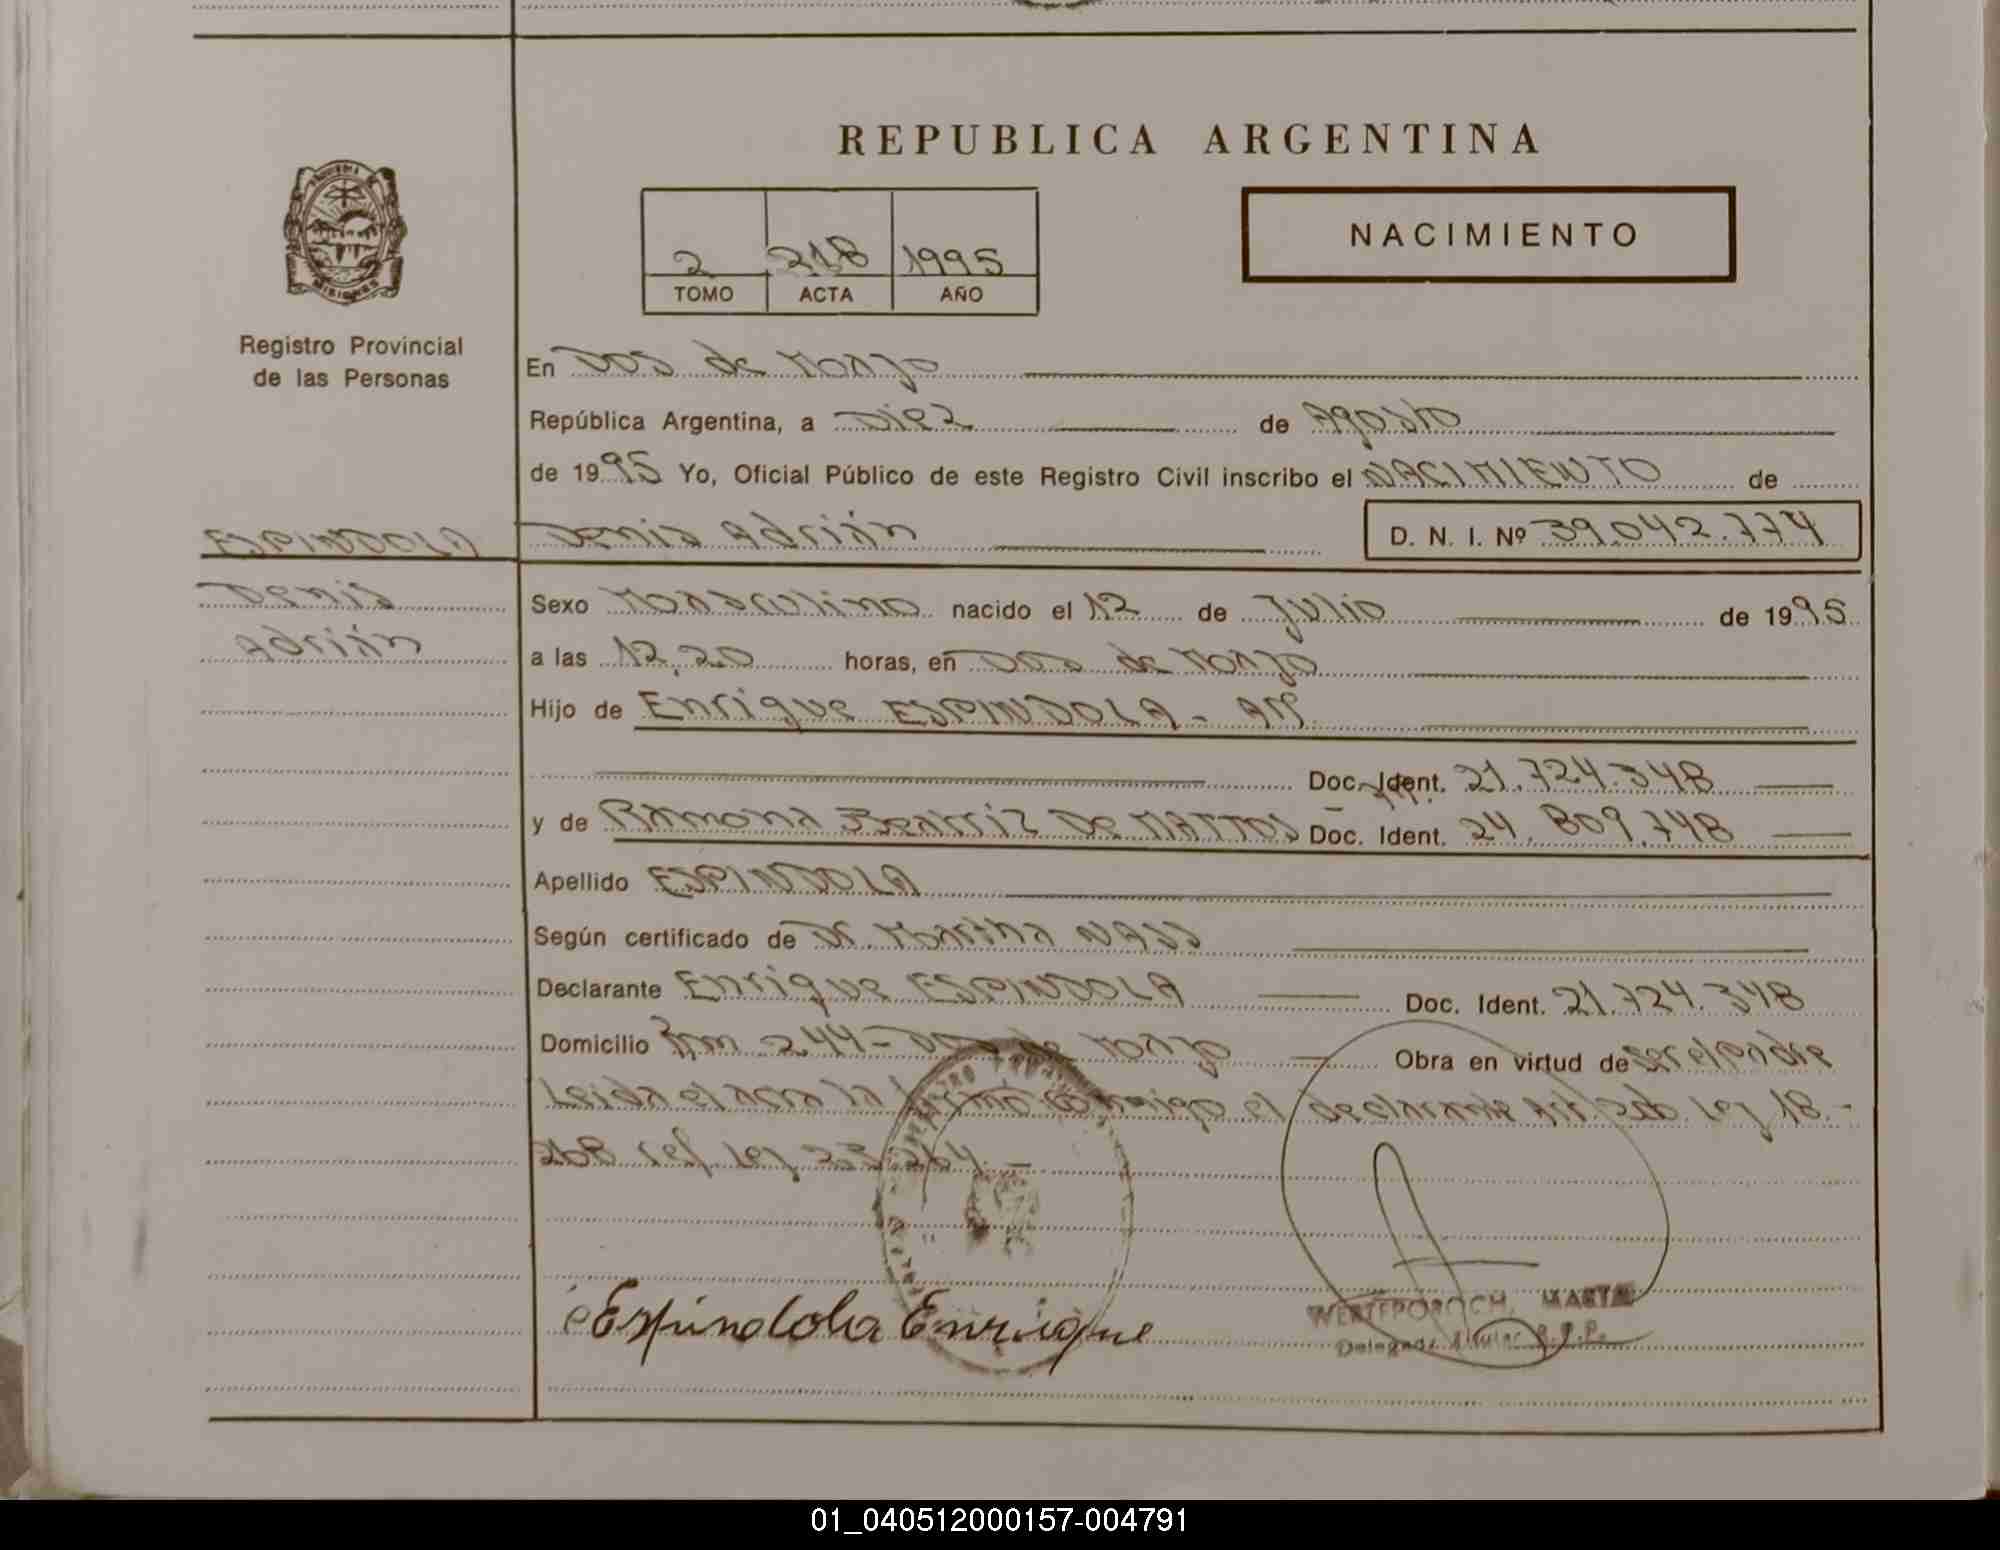 REPUBLICA ARGENTINA
NACIMIENTO
2 218 1995
TOMO ACTA AÑO
MISIONES
Registro Provincial
de las Personas
En Dos de Mayo
República Argentina, a Diez de Agosto
de 1995 Yo, Oficial Público de este Registro Civil inscribo el NACIMIENTO de
ESPINDOLA Denis Adrián D. N. I. Nº 39.042.774
Denis
Adrián
Sexo Masculino nacido el 12 de Julio de 1995
a las 12,20 horas, en Dos de Mayo
Hijo de Enrique ESPINDOLA - Ar.
Doc. Ident. 21.724.348
y de Ramona Beatriz De MATTOS Doc. Ident. 24.809.748
Apellido ESPINDOLA
Según certificado de Dr. Martha NASS
Declarante Enrique ESPINDOLA Doc. Ident. 21.724.348
Domicilio Km 244 - Dos de Mayo Obra en virtud de ser el padre
Leida el acta la firma conmigo el declarante Art. Ley 18.-
ref. Ley 23.264.-
Espíndola Enrique
WERTEPOROCH, MARTA
Delegada Titular R.P.P.
01_040512000157-004791